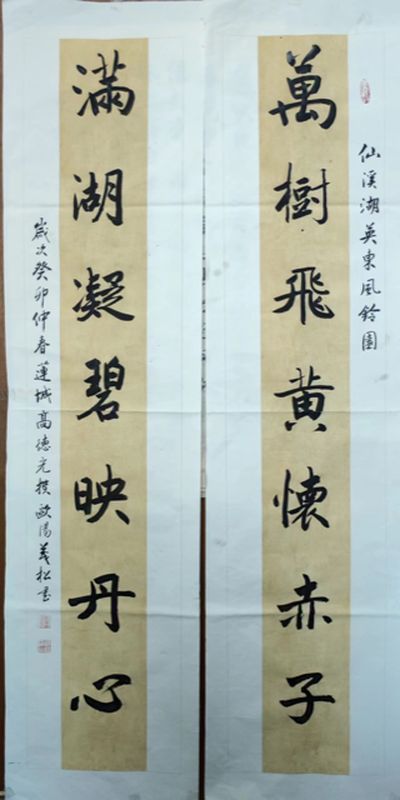 仙溪湖英東風鈴園
萬樹飛黄懷赤子
滿湖凝碧映丹心
歲次癸卯仲春蓮城高德光撰歐陽義松書